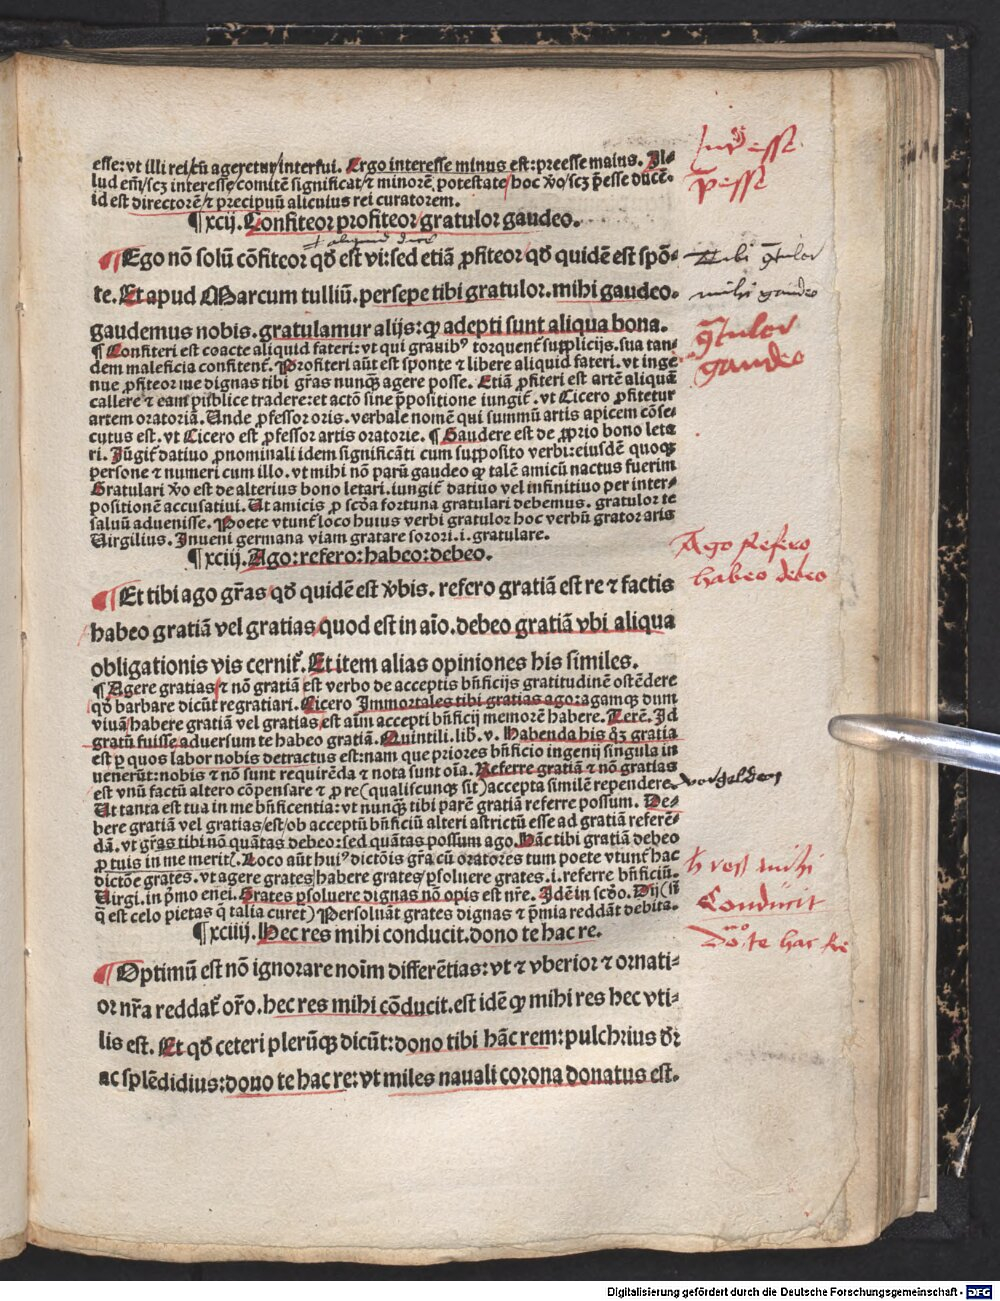 esse: vt illi rei/cū ageretur/interfui. Ergo interesse minus est: preesse maius. Il⸗
lud em̄/scʒ interesse/comitē significat/ ⁊ minorē potestatē/ hoc v̓o/scʒ p̄esse ducē.
id est directorē/ ⁊ precipuū alicuius rei curatorem.
¶xcij. Confiteor profiteor/gratulor gaudeo.
¶Ego nō solū cōfiteor qd̄ est vi: sed etiā ꝓfiteor/qd̄ quidē est spō⸗
te. Et apud Marcum tulliū. persepe tibi gratulor. mihi gaudeo.
gaudemus nobis. gratulamur alijs: ꝙ adepti sunt aliqua bona.
¶ Confiteri est coacte aliquid fateri: vt qui grauibꝰ torquent̄ supplicijs. sua tan⸗
dem maleficia confitent̄. Profiteri aūt est sponte ⁊ libere aliquid fateri. vt inge
nue ꝓfiteor me dignas tibi gr̄as nunqꝫ agere posse. Etiā ꝓfiteri est artē aliquā
callere ⁊ eam publice tradere: et actō sine p̄positione iungit̄. vt Cicero ꝓfitetur
artem oratoriā. Unde ꝓfessor oris. verbale nomē qui summū artis apicem cōse⸗
cutus est. vt Cicero est ꝓfessor artis oratorie. ¶ Gaudere est de ꝓprio bono leta
ri. Jūgit̄ datiuo ꝓnominali idem significāti cum supposito verbi: eiusdē quoqꝫ
persone ⁊ numeri cum illo. vt mihi nō parū gaudeo ꝙ talē amicū nactus fuerim
Gratulari v̓o est de alterius bono letari. iungit̄ datiuo vel infinitiuo per inter⸗
positionē accusatiui. Ut amicis ꝓ scd̄a fortuna gratulari debemus. gratulor te
saluū aduenisse. Poete vtunt̄ loco huius verbi gratulor hoc verbū grator aris
Uirgilius. Inueni germana viam gratare sorori. i. gratulare.
¶xciij. Ago: refero: habeo: debeo.
¶Et tibi ago gr̄as/qd̄ quidē est v̓bis. refero gratiā est re ⁊ factis
habeo gratiā vel gratias/quod est in aīo. debeo gratiā vbi aliqua
obligationis vis cernit̄. Et item alias opiniones his similes.
¶ Agere gratias/ ⁊ nō gratiā est verbo de acceptis bn̄ficijs gratitudinē ostēdere
qd̄ barbare dicūt regratiari. Cicero Immortales tibi gratias ago: agamqꝫ dum
viuā/habere gratiā vel gratias/est aīm accepti bn̄ficij memorē habere. Terē. Id
gratū fuisse aduersum te habeo gratiā. Quintili. lib̄. v. Habenda his qd̓ʒ gratia
est ꝑ quos labor nobis detractus est: nam que priores bn̄ficio ingenij singula in
uenerūt: nobis ⁊ nō sunt requirēda ⁊ nota sunt oīa. Referre gratiā ⁊ nō gratias
est vnū factū altero cōpensare ⁊ ꝓ re (qualiscunqꝫ sit) accepta similē rependere.
Ut tanta est tua in me bn̄ficentia: vt nunqꝫ tibi parē gratiā referre possum. De⸗
bere gratiā vel gratias/est/ob acceptū bn̄ficiū alteri astrictū esse ad gratiā referē⸗
dā. vt gr̄as tibi nō quātas debeo: sed quātas possum ago. Hāc tibi gratiā debeo
ꝓ tuis in me merit̄. Loco aūt huiꝰ dictōis gr̄a cū oratores tum poete vtunt̄ hac
dictōe grates. vt agere grates/habere grates/ꝑsoluere grates. i. referre bn̄ficiū.
Uirgi. in p̄mo enei. Grates ꝑsoluere dignas nō opis est nr̄e. Idē in scd̄o. Dij (si
q̄ est celo pietas q̄ talia curet) Persoluāt grates dignas ⁊ p̄mia reddāt debita.
¶xciiij. Hec res mihi conducit. dono te hac re.
¶Optimū est nō ignorare noīm differētias: vt ⁊ vberior ⁊ ornati⸗
or nr̄a reddat̄ or̄o. hec res mihi cōducit. est idē ꝙ mihi res hec vti⸗
lis est. Et qd̄ ceteri plerūqꝫ dicūt: dono tibi hāc rem: pulchrius dr̄
ac splēdidius: dono te hac re: vt miles nauali corona donatus est.
p̄esse
Tibi gr̄tulor
mihi gaudeo
gr̄tulor
gaudeo
Ago Refero
habeo debeo
vorgelden
h res mihi
Conducit
Dono te hac Re
Digitalisierung gefördert durch die Deutsche Forschungsgemeinschaft - DFG